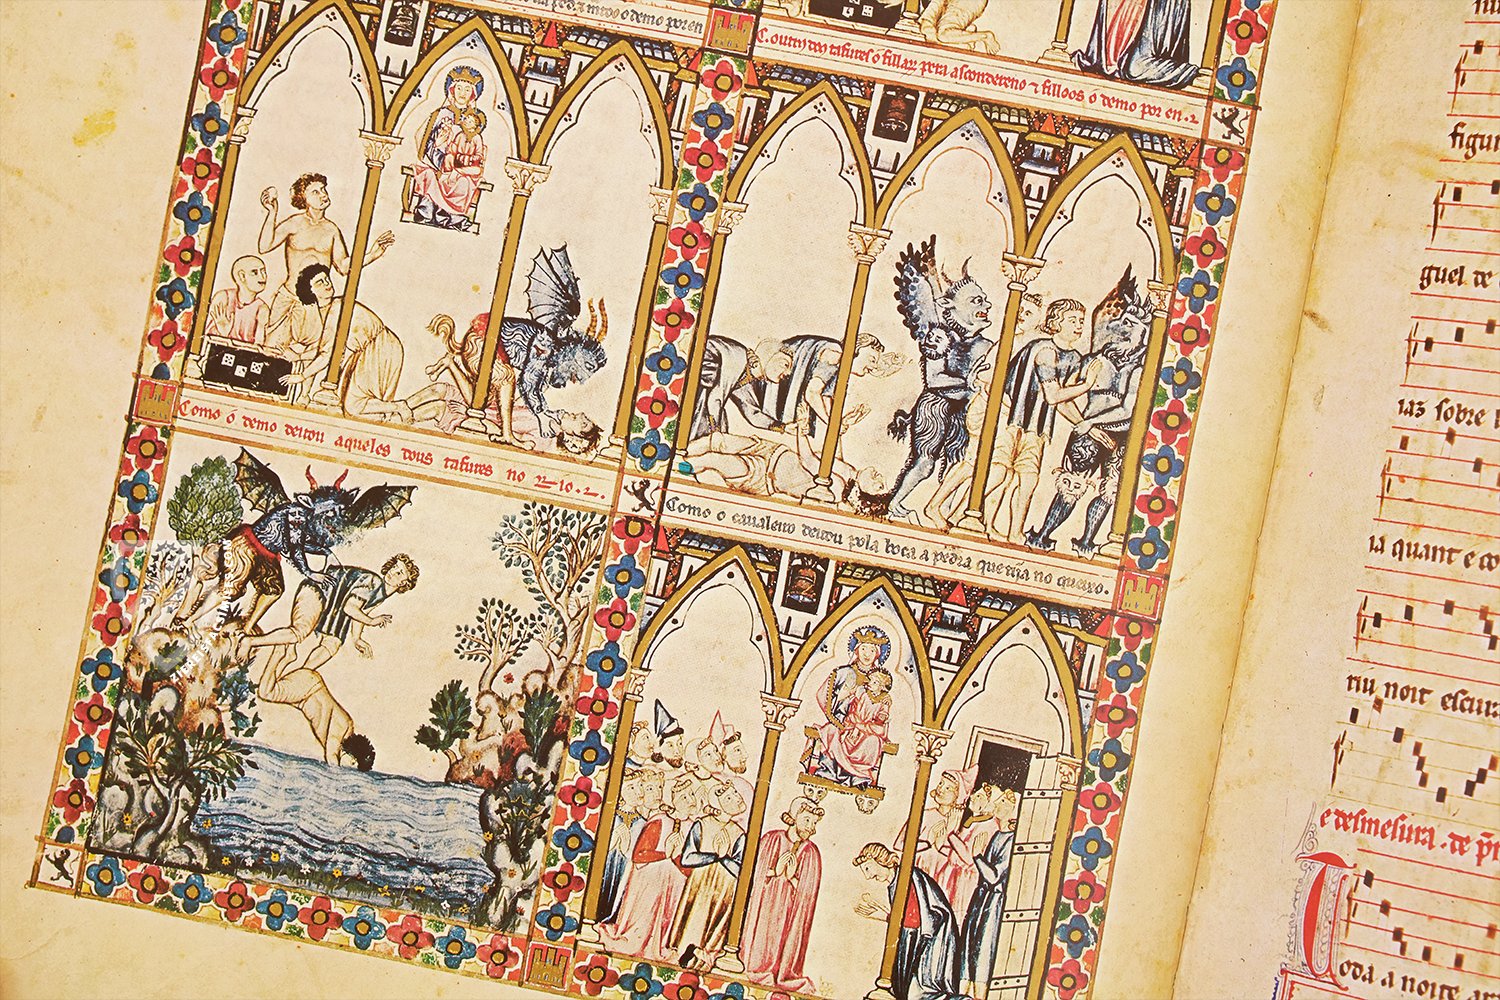 o demo por en
C. outro dos tafures o fillar pera ascondereno ⁊ fillóos o demo por en.
Como o demo deitou aqueles dous tafures no rio.
Como o caualeiro deitou pola boca a pedra que tiia no queixo.
figur
guel de
iaz sobre
ia quant e co
riu noit escura
e desmesura. de
Toda a noite ar